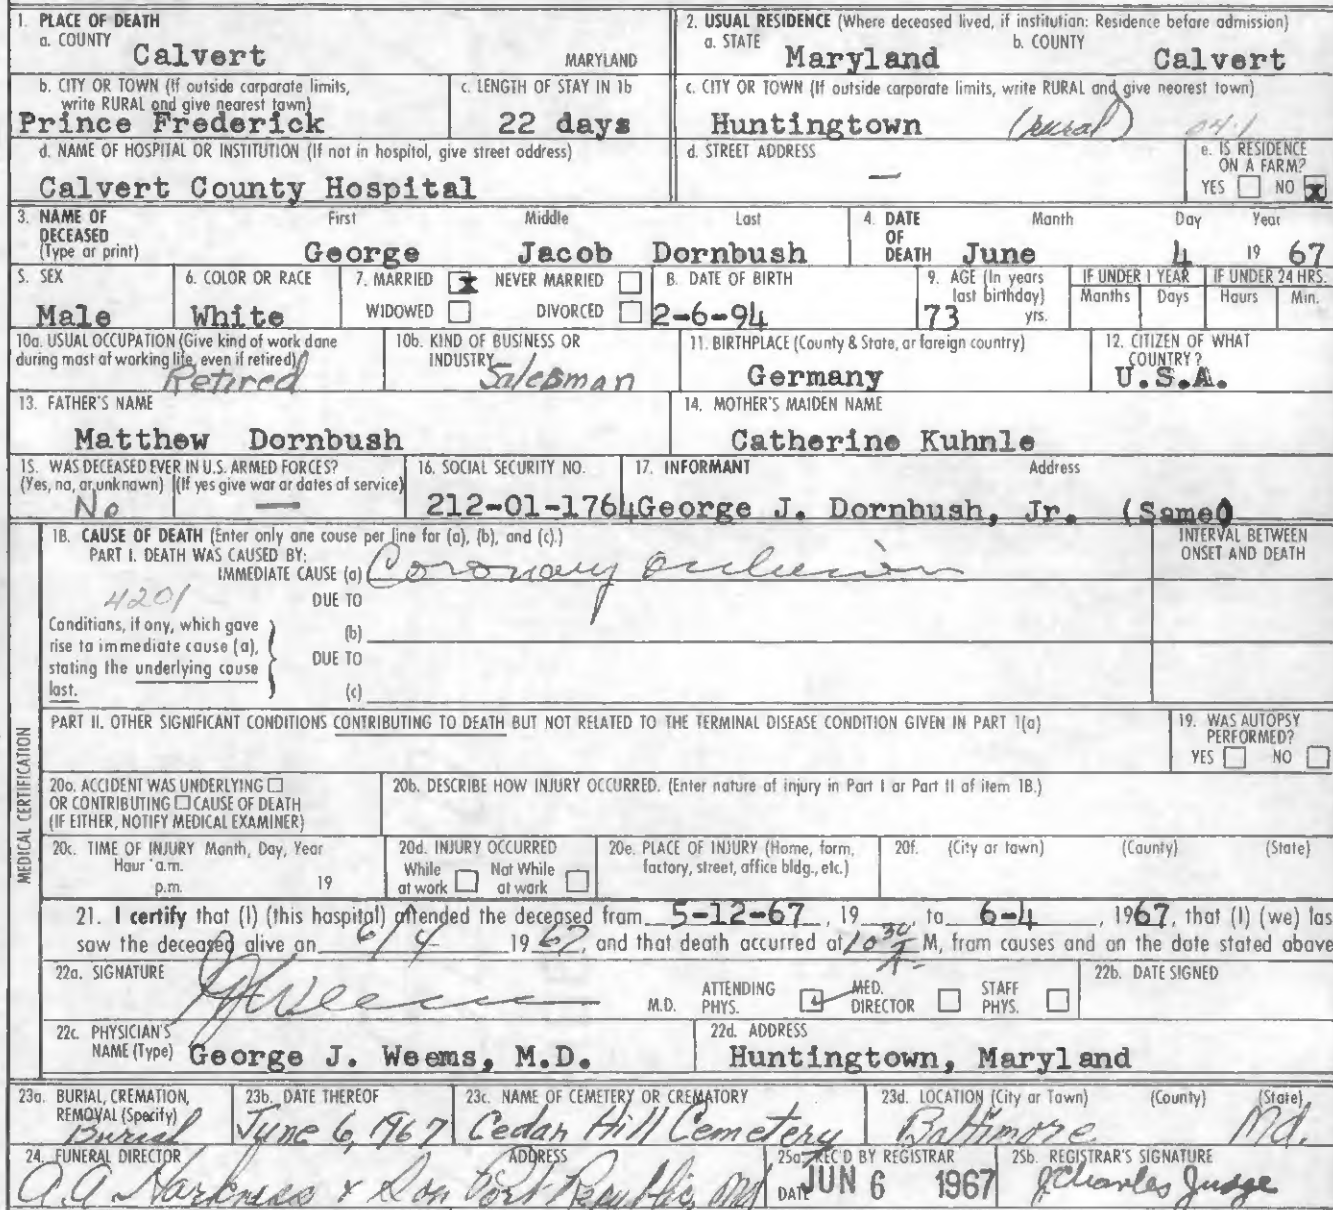 1. PLACE OF DEATH
a. COUNTY
Calvert MARYLAND
2. USUAL RESIDENCE (Where deceased lived, if institution: Residence before admission)
a. STATE b. COUNTY
Maryland Calvert
b. CITY OR TOWN (If outside corporate limits,
write RURAL and give nearest town)
Prince Frederick
c. LENGTH OF STAY IN 1b
22 days
c. CITY OR TOWN (If outside corporate limits, write RURAL and give nearest town)
Huntingtown (rural) 04-1
d. NAME OF HOSPITAL OR INSTITUTION (If not in hospital, give street address)
Calvert County Hospital
d. STREET ADDRESS
—
e. IS RESIDENCE
ON A FARM?
YES NO x
3. NAME OF
DECEASED
(Type or print)
First Middle Last
George Jacob Dornbush
4. DATE
OF
DEATH
Month Day Year
June 4 19 67
5. SEX
Male
6. COLOR OR RACE
White
7. MARRIED x NEVER MARRIED
WIDOWED DIVORCED
8. DATE OF BIRTH
2-6-94
9. AGE (In years
last birthday)
73 yrs.
IF UNDER 1 YEAR
Months Days
IF UNDER 24 HRS.
Hours Min.
10a. USUAL OCCUPATION (Give kind of work done
during most of working life, even if retired)
Retired
10b. KIND OF BUSINESS OR
INDUSTRY
Salesman
11. BIRTHPLACE (County & State, or foreign country)
Germany
12. CITIZEN OF WHAT
COUNTRY?
U.S.A.
13. FATHER'S NAME
Matthew Dornbush
14. MOTHER'S MAIDEN NAME
Catherine Kuhnle
15. WAS DECEASED EVER IN U.S. ARMED FORCES?
(Yes, no, or unknown) (If yes give war or dates of service)
No —
16. SOCIAL SECURITY NO.
212-01-1764
17. INFORMANT Address
George J. Dornbush, Jr. (Same)
18. CAUSE OF DEATH (Enter only one cause per line for (a), (b), and (c).)
PART I. DEATH WAS CAUSED BY:
IMMEDIATE CAUSE (a) Coronary occlusion
INTERVAL BETWEEN
ONSET AND DEATH
4201
DUE TO
Conditions, if any, which gave
rise to immediate cause (a),
stating the underlying cause
last.
(b)
DUE TO
(c)
PART II. OTHER SIGNIFICANT CONDITIONS CONTRIBUTING TO DEATH BUT NOT RELATED TO THE TERMINAL DISEASE CONDITION GIVEN IN PART 1(a)
19. WAS AUTOPSY
PERFORMED?
YES NO
MEDICAL CERTIFICATION
20a. ACCIDENT WAS UNDERLYING
OR CONTRIBUTING CAUSE OF DEATH
(IF EITHER, NOTIFY MEDICAL EXAMINER)
20b. DESCRIBE HOW INJURY OCCURRED. (Enter nature of injury in Part I or Part II of item 18.)
20c. TIME OF INJURY Month, Day, Year
Hour a.m.
p.m. 19
20d. INJURY OCCURRED
While Not While
at work at work
20e. PLACE OF INJURY (Home, form,
factory, street, office bldg., etc.)
20f. (City or town) (County) (State)
21. I certify that (I) (this hospital) attended the deceased from 5-12-67, 19 to 6-4, 1967, that (I) (we) las
saw the deceased alive on 6/4 1967, and that death occurred at 10 30 A. M, from causes and on the date stated above
22a. SIGNATURE
GJWeems
M.D.
ATTENDING
PHYS.
MED.
DIRECTOR
STAFF
PHYS.
22b. DATE SIGNED
22c. PHYSICIAN'S
NAME (Type) George J. Weems, M.D.
22d. ADDRESS
Huntingtown, Maryland
23a. BURIAL, CREMATION,
REMOVAL (Specify)
Burial
23b. DATE THEREOF
June 6, 1967
23c. NAME OF CEMETERY OR CREMATORY
Cedar Hill Cemetery
23d. LOCATION (City or Town) (County) (State)
Baltimore Md.
24. FUNERAL DIRECTOR ADDRESS
A.A Harkness & Son Port Republic, Md
25a. REC'D BY REGISTRAR
DATE JUN 6 1967
25b. REGISTRAR'S SIGNATURE
J Charles Judge